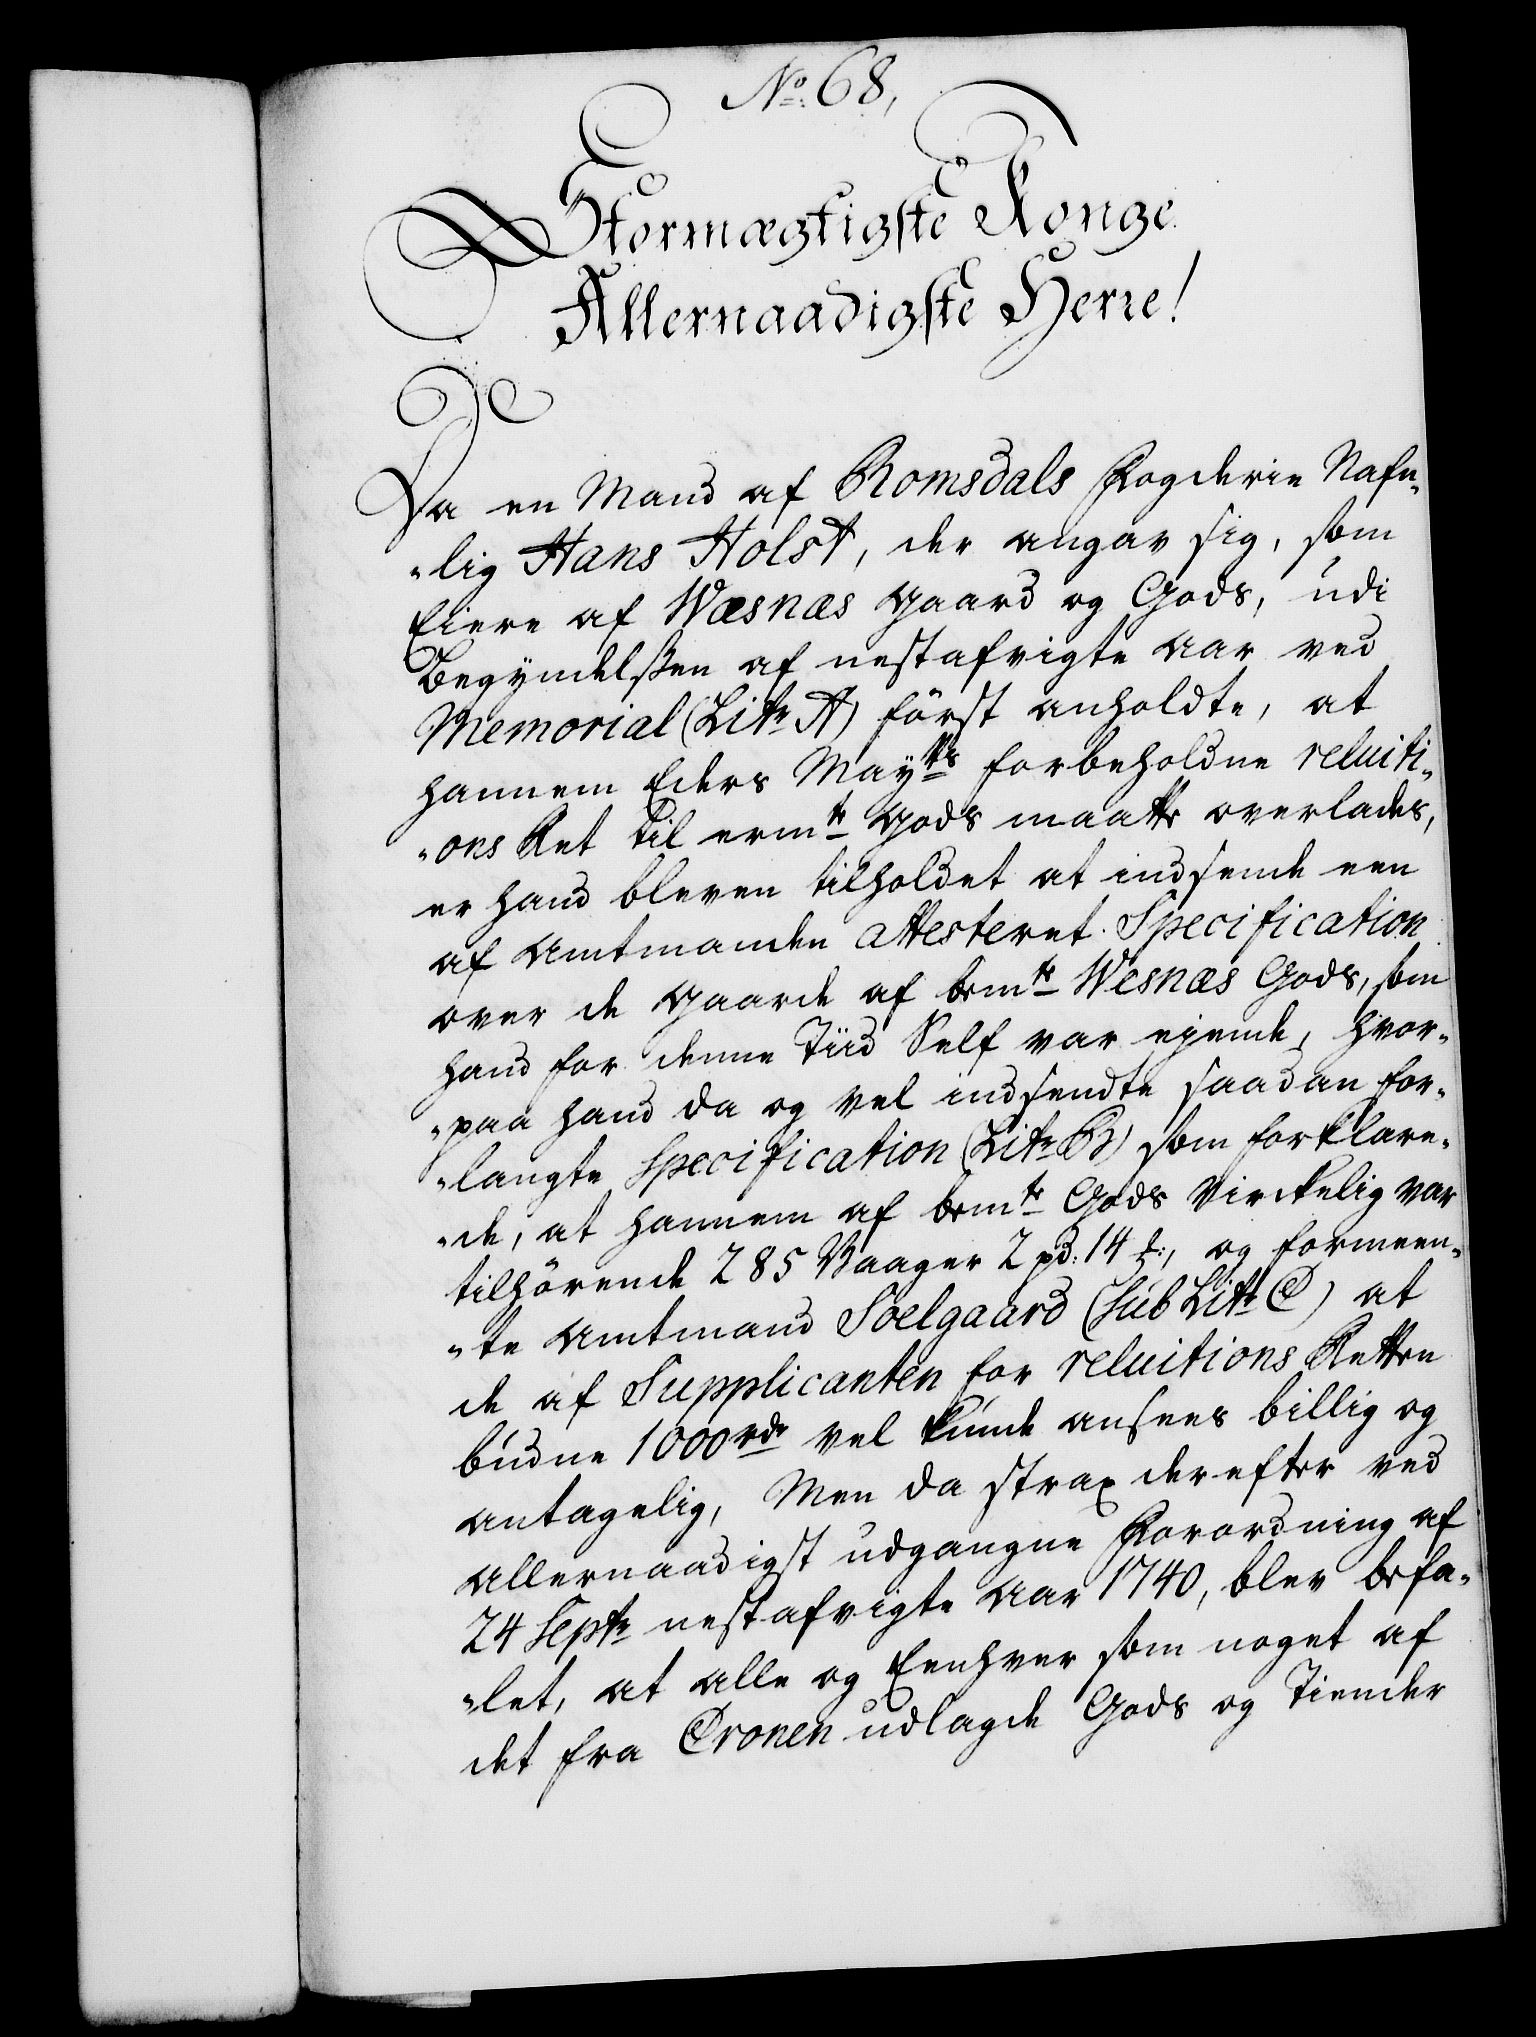 No: 68,
Stormægtigste Konge
Allernaadigste Herre!
Da en Mand af Romsdals Fogderie Nafn„
„lig Hans Holst, der angav sig, som
Eiere af Wæsnæs gaard og Gods, udi
Begyndelßen af nestafvigte Aar ved
Memorial (Litr A) först anholdte, at
hannem Eders Mayts forbeholdne reluiti„
„ons Ret til ermte Gods maatte overlades,
er hand bleven tilholdet at indsende een
af Amtmanden attesteret Specification
over de gaarde af bemte Wesnæs Gods, som
hand for denne Tiid Self var ejende, hvor„
„paa hand da og vel indsendte saadan for„
„langte Specification (Litr B) som forklare„
„de, at hannem af bemte Gods Virckelig var
tilhörende 285 Vaager 2 pd: 14 ₶:, og formeen„
„te Amtmand Soelgaard (Sub Litr C) at
de af Supplicanten for reluitions Retten
budne 1000 rdr vel kunde ansees billig og
antagelig, Men da strax derefter ved
Allernaadigst udgangne Forordning af
24 Septr nestafvigte Aar 1740, blev befa„
„let, at alle og Eenhver som noget af
det fra Cronen udlagde Gods og Tiender